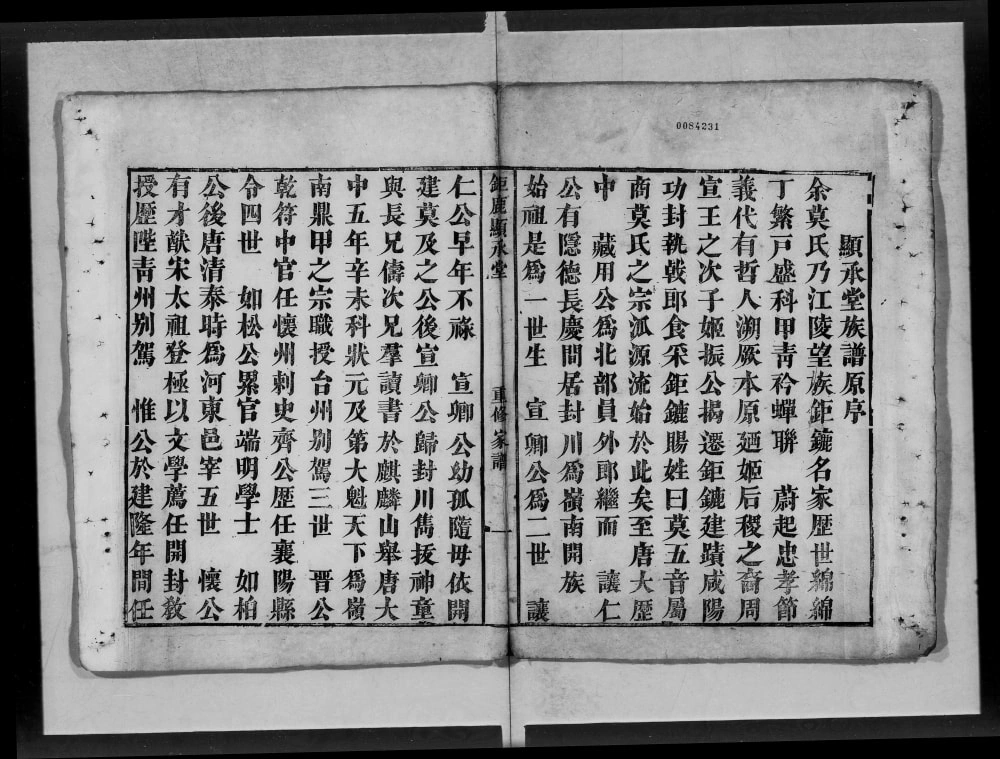 0084231
顯承堂族譜原序
余莫氏乃江陵望族鉅鏕名家歷世綿綿
丁繁戸盛科甲靑衿蟬聯 蔚起忠孝節
義代有哲人溯厥本原廼姬后稷之裔周
宣王之次子姬振公揭遷鉅鏕建蹟咸陽
功封執戟郎食采鉅鏕賜姓曰莫五音屬
商莫氏之宗派源流始於此矣至唐大歷
中 藏用公爲北部員外郎繼而 讓仁
公有隱德長慶間居封川爲嶺南開族
始祖是爲一世生 宣卿公爲二世 讓
鉅鹿顯承堂 重修家譜 一
仁公早年不祿 宣卿公幼孤隨母依開
建莫及之公後宣卿公歸封川雋拔神童
與長兄儔次兄羣讀書於麒麟山舉唐大
中五年辛未科狀元及第大魁天下爲嶺
南鼎甲之宗職授台州别駕三世 晋公
乾符中官任懷州刺史齊公歷任襄陽縣
令四世 如松公累官端明學士 如柏
公後唐清泰時爲河東邑宰五世 懷公
有才猷宋太祖登極以文學薦任開封敎
授歷陞靑州别駕 惟公於建隆年間任